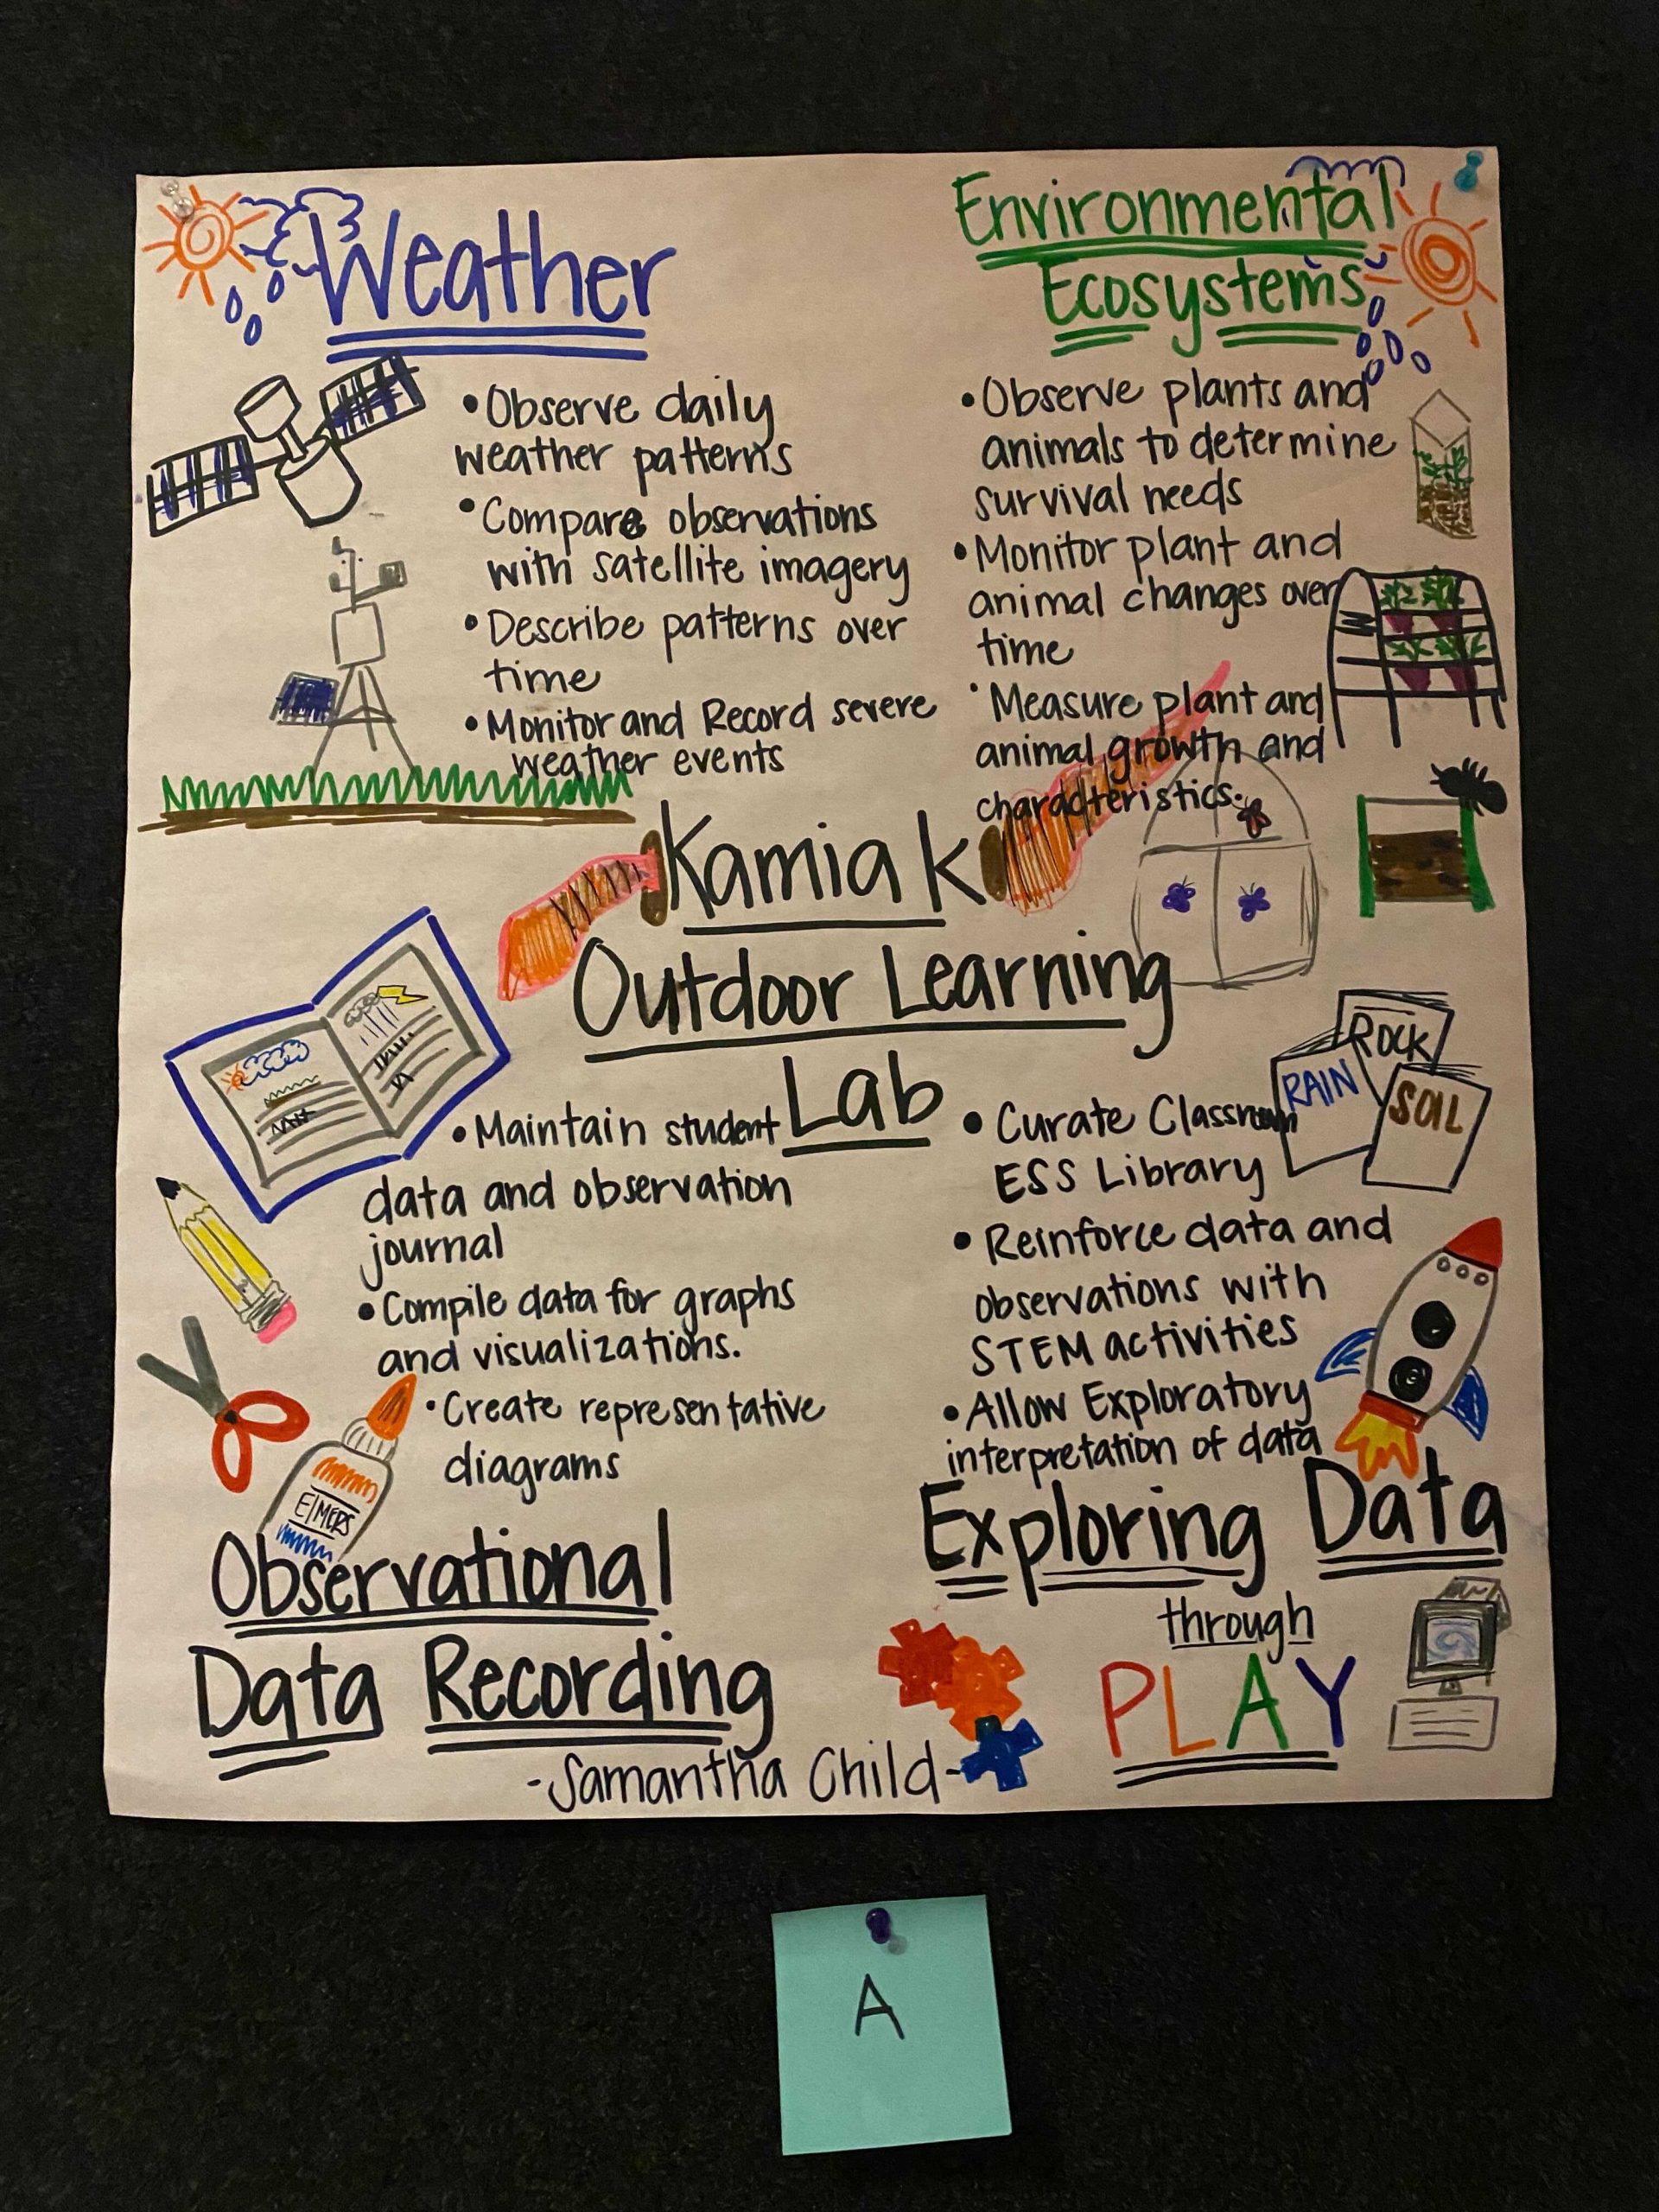 Weather
• Observe daily
weather patterns
• Compare observations
with satellite imagery
• Describe patterns over
time
• Monitor and Record severe
weather events
Environmental
Ecosystems
• Observe plants and
animals to determine
survival needs
• Monitor plant and
animal changes over
time
• Measure plant and
animal growth and
characteristics.
Kamiak
Outdoor Learning
Lab
• Maintain student
data and observation
journal
• Compile data for graphs
and visualizations.
• Create representative
diagrams
ELMERS
Observational
Data Recording
ROCK
RAIN
SOIL
• Curate Classroom
ESS Library
• Reinforce data and
observations with
STEM activities
• Allow Exploratory
interpretation of data
Exploring Data
through
PLAY
-Samantha Child-
A